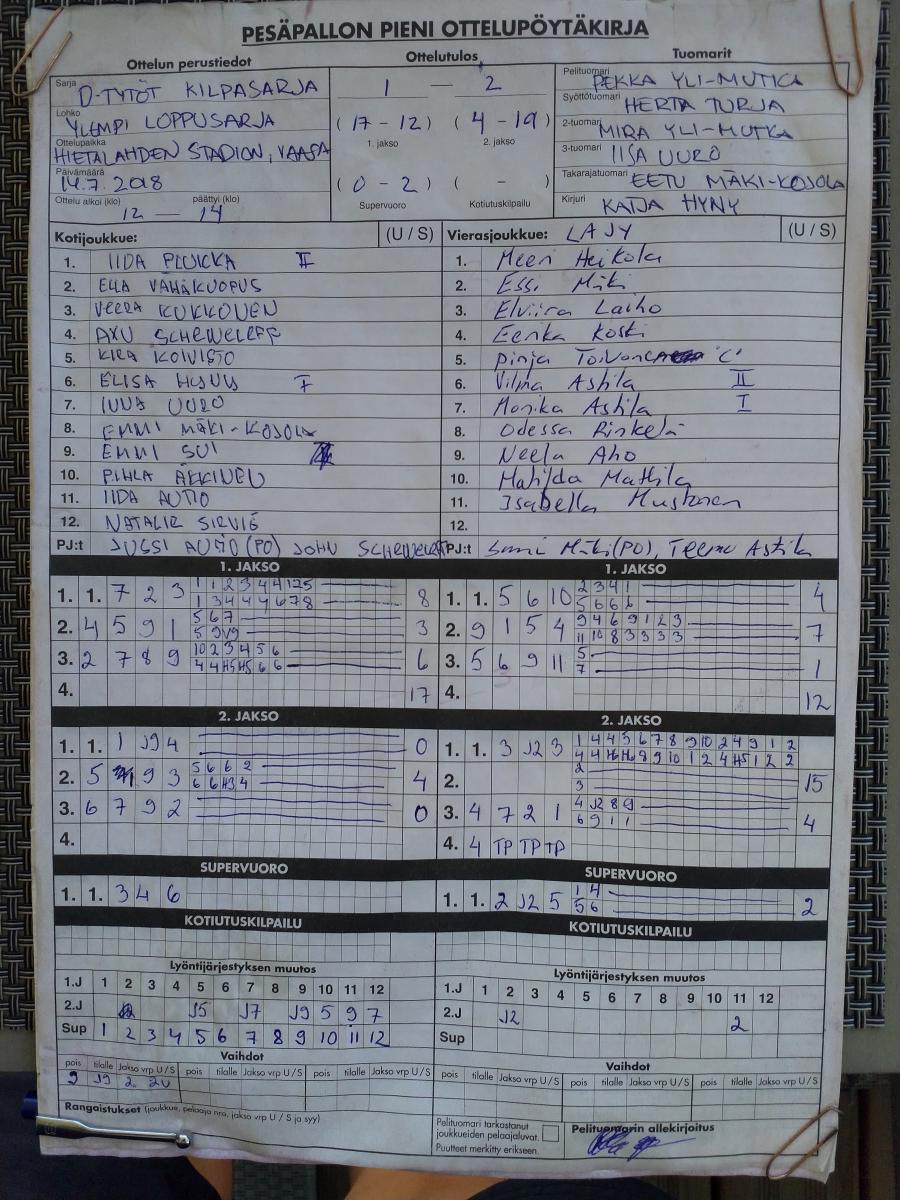 PESÄPALLON PIENI OTTELUPÖYTÄKIRJA
Ottelun perustiedot Ottelutulos Tuomarit
Sarja D-TYTÖT KILPASARJA 1 — 2 Pelituomari PEKKA YLI-MUTKA
Lohko YLEMPI LOPPUSARJA (17 - 12) (4 - 19) Syöttötuomari HERTA TURJA
Ottelupaikka HIETALAHDEN STADION, VAASA 1. jakso 2. jakso 2-tuomari MIRA YLI-MUTKA
Päivämäärä 14.7.2018 (0 - 2) ( - ) 3-tuomari IISA UURO
Ottelu alkoi (klo) päättyi (klo) 12 — 14 Supervuoro Kotiutuskilpailu Takarajatuomari EETU MÄKI-KOJOLA
Kirjuri KATJA HYNY
Kotijoukkue: (U / S) Vierasjoukkue: LAJY (U / S)
1. IIDA PLUKKA II 1. Meeri Heikola
2. ELLA VÄHÄKUOPUS 2. Essi Mäki
3. VEERA KUKKONEN 3. Elviira Laiho
4. 4. Eerika Koski
5. KIRA KOIVISTO 5. Pinja Toivonen "C"
6. ELISA I 6. Vilma Astila II
7. UURO 7. Monika Astila I
8. EMMI MÄKI-KOJOLA 8. Odessa Rinkelä
9. EMMI SUI 9. Neela Aho
10. PIHLA ÄKKINEN 10. Matilda Mattila
11. IIDA AUTIO 11. Isabella Mustonen
12. NATALIE SIRVIÖ 12.
PJ:t JUSSI AUTIO (PO) JOHN PJ:t Sami Mäki (PO), Teemu Astila
1. JAKSO 1. JAKSO
1. 1. 7 2 3 1 1 2 3 4 4 1 2 5 8 1. 1. 5 6 10 2 3 4 1 4
1 3 4 4 4 6 7 8 5 6 6 6
2. 4 5 9 1 5 6 7 3 2. 9 1 5 4 9 4 6 9 1 2 3 7
5 9 11 10 8 3 3 3 3
3. 2 7 8 9 10 2 3 4 5 6 6 3. 5 6 9 11 5 1
4 4 H5 H5 6 6 7
4. 17 4. 12
2. JAKSO 2. JAKSO
1. 1. 1 J9 4 0 1. 1. 3 J2 3 1 4 4 5 6 7 8 9 10 2 4 9 1 2
4 4 H6 H6 8 9 10 1 2 4 H5 1 2 2
2. 5 9 3 5 6 6 2 4 2. 2 15
6 6 H3 4 3
3. 6 7 9 2 0 3. 4 7 2 1 4 J2 8 9 4
6 9 1 1
4. 4. 4 TP TP TP
SUPERVUORO SUPERVUORO
1. 1. 3 4 6 1. 1. 2 J2 5 1 4 2
5 6
KOTIUTUSKILPAILU KOTIUTUSKILPAILU
Lyöntijärjestyksen muutos Lyöntijärjestyksen muutos
1.J 1 2 3 4 5 6 7 8 9 10 11 12 1.J 1 2 3 4 5 6 7 8 9 10 11 12
2.J J5 J7 J9 5 9 7 2.J J2 2
Sup 1 2 3 4 5 6 7 8 9 10 11 12 Sup
Vaihdot Vaihdot
pois tilalle Jakso vrp U / S pois tilalle Jakso vrp U / S pois tilalle Jakso vrp U / S pois tilalle Jakso vrp U / S pois tilalle Jakso vrp U / S pois tilalle Jakso vrp U / S
9 J9 2. 2U
Rangaistukset (joukkue, pelaaja nro, jakso vrp U / S ja syy)
Pelituomari tarkastanut joukkueiden pelaajaluvat. Pelituomarin allekirjoitus
Puutteet merkitty erikseen.